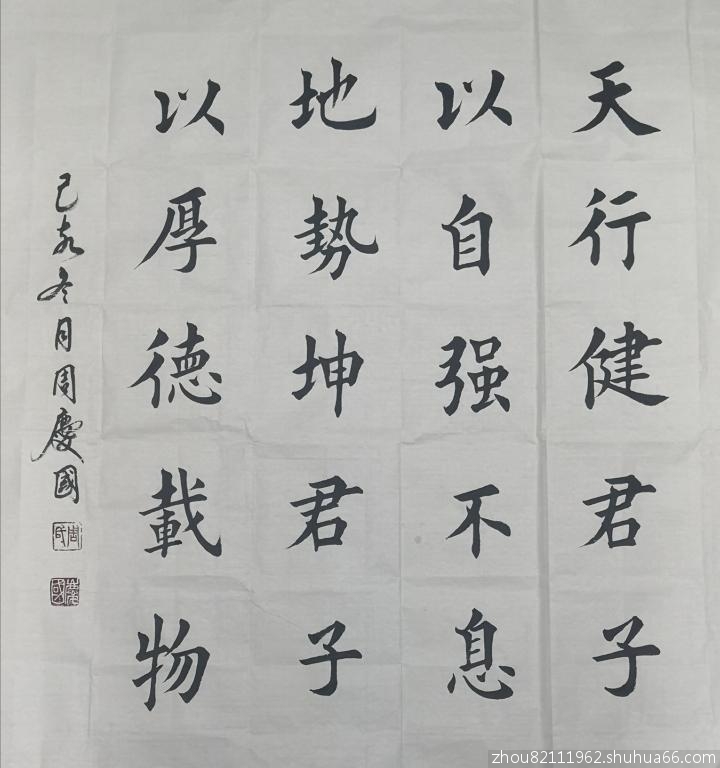 天行健君子
以自强不息
地勢坤君子
以厚德載物
己亥冬月周慶國
周氏
慶國
zhou82111962.shuhua66.com